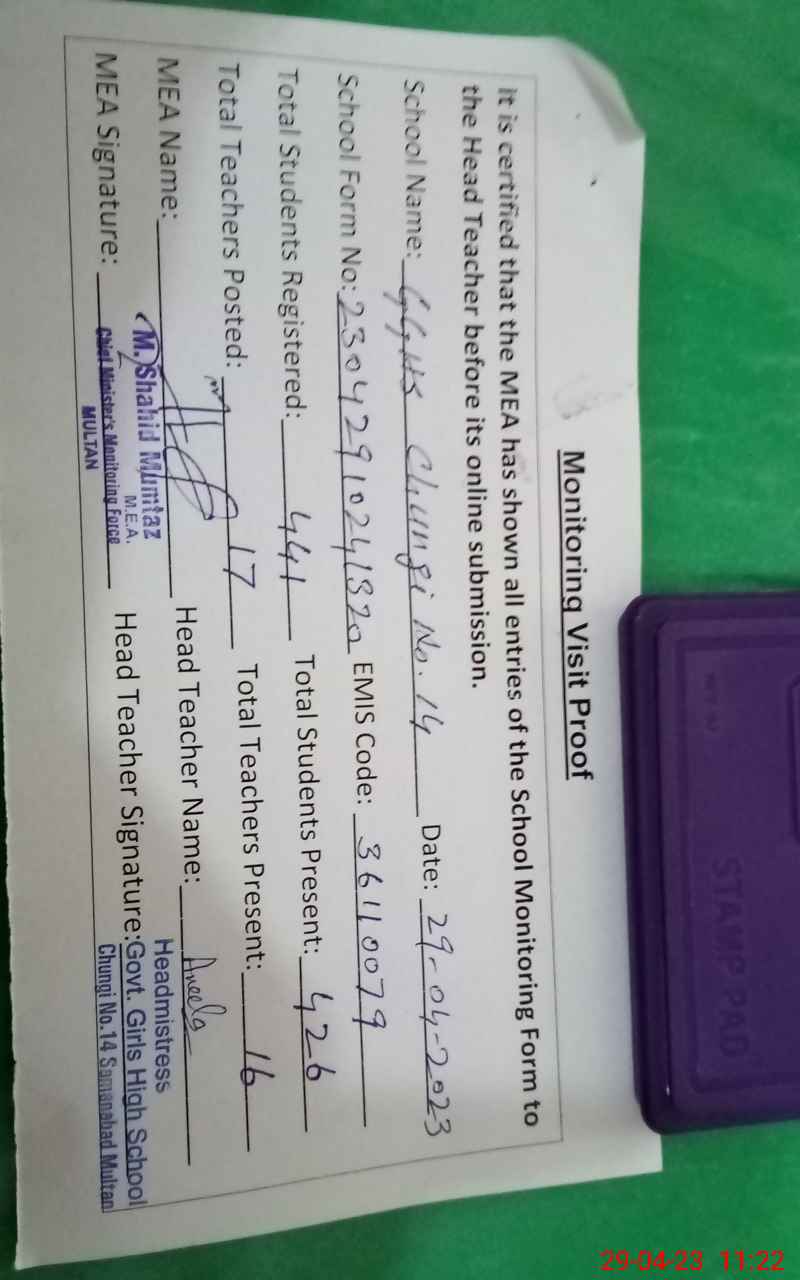 Monitoring Visit Proof
it is certified that the MEA has shown all entries of the School Monitoring Form to
the Head Teacher before its online submission.
School Name: GGHS Chungi No.14 Date: 29-04-2023
School Form No: EMIS Code: 36110079
Total Students Registered: 441 Total Students Present: 426
Total Teachers Posted: 17 Total Teachers Present: 16
MEA Name: Head Teacher Name: Aneela
MEA Signature: Head Teacher Signature:
M. Shahid Mumtaz
M.E.A.
Chief Minister's Monitoring Force
MULTAN
Headmistress
Govt. Girls High School
Chungi No.14 Samanabad Multan
STAMP PAD
29-04-23 11:22